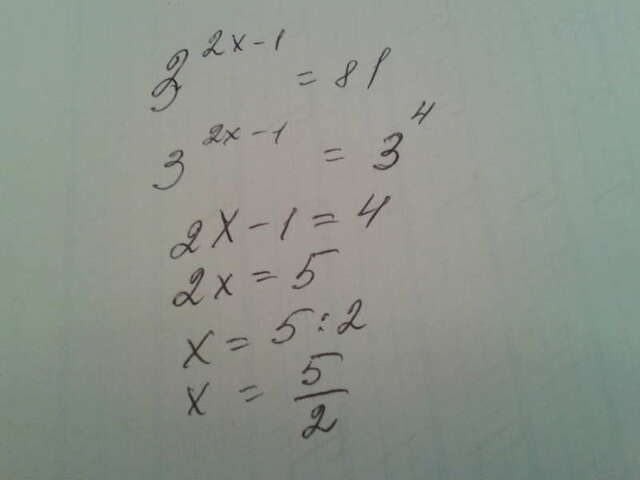 3^{2x-1} = 81
3^{2x-1} = 3^4
2x-1=4
2x=5
x=5:2
x = \frac{5}{2}